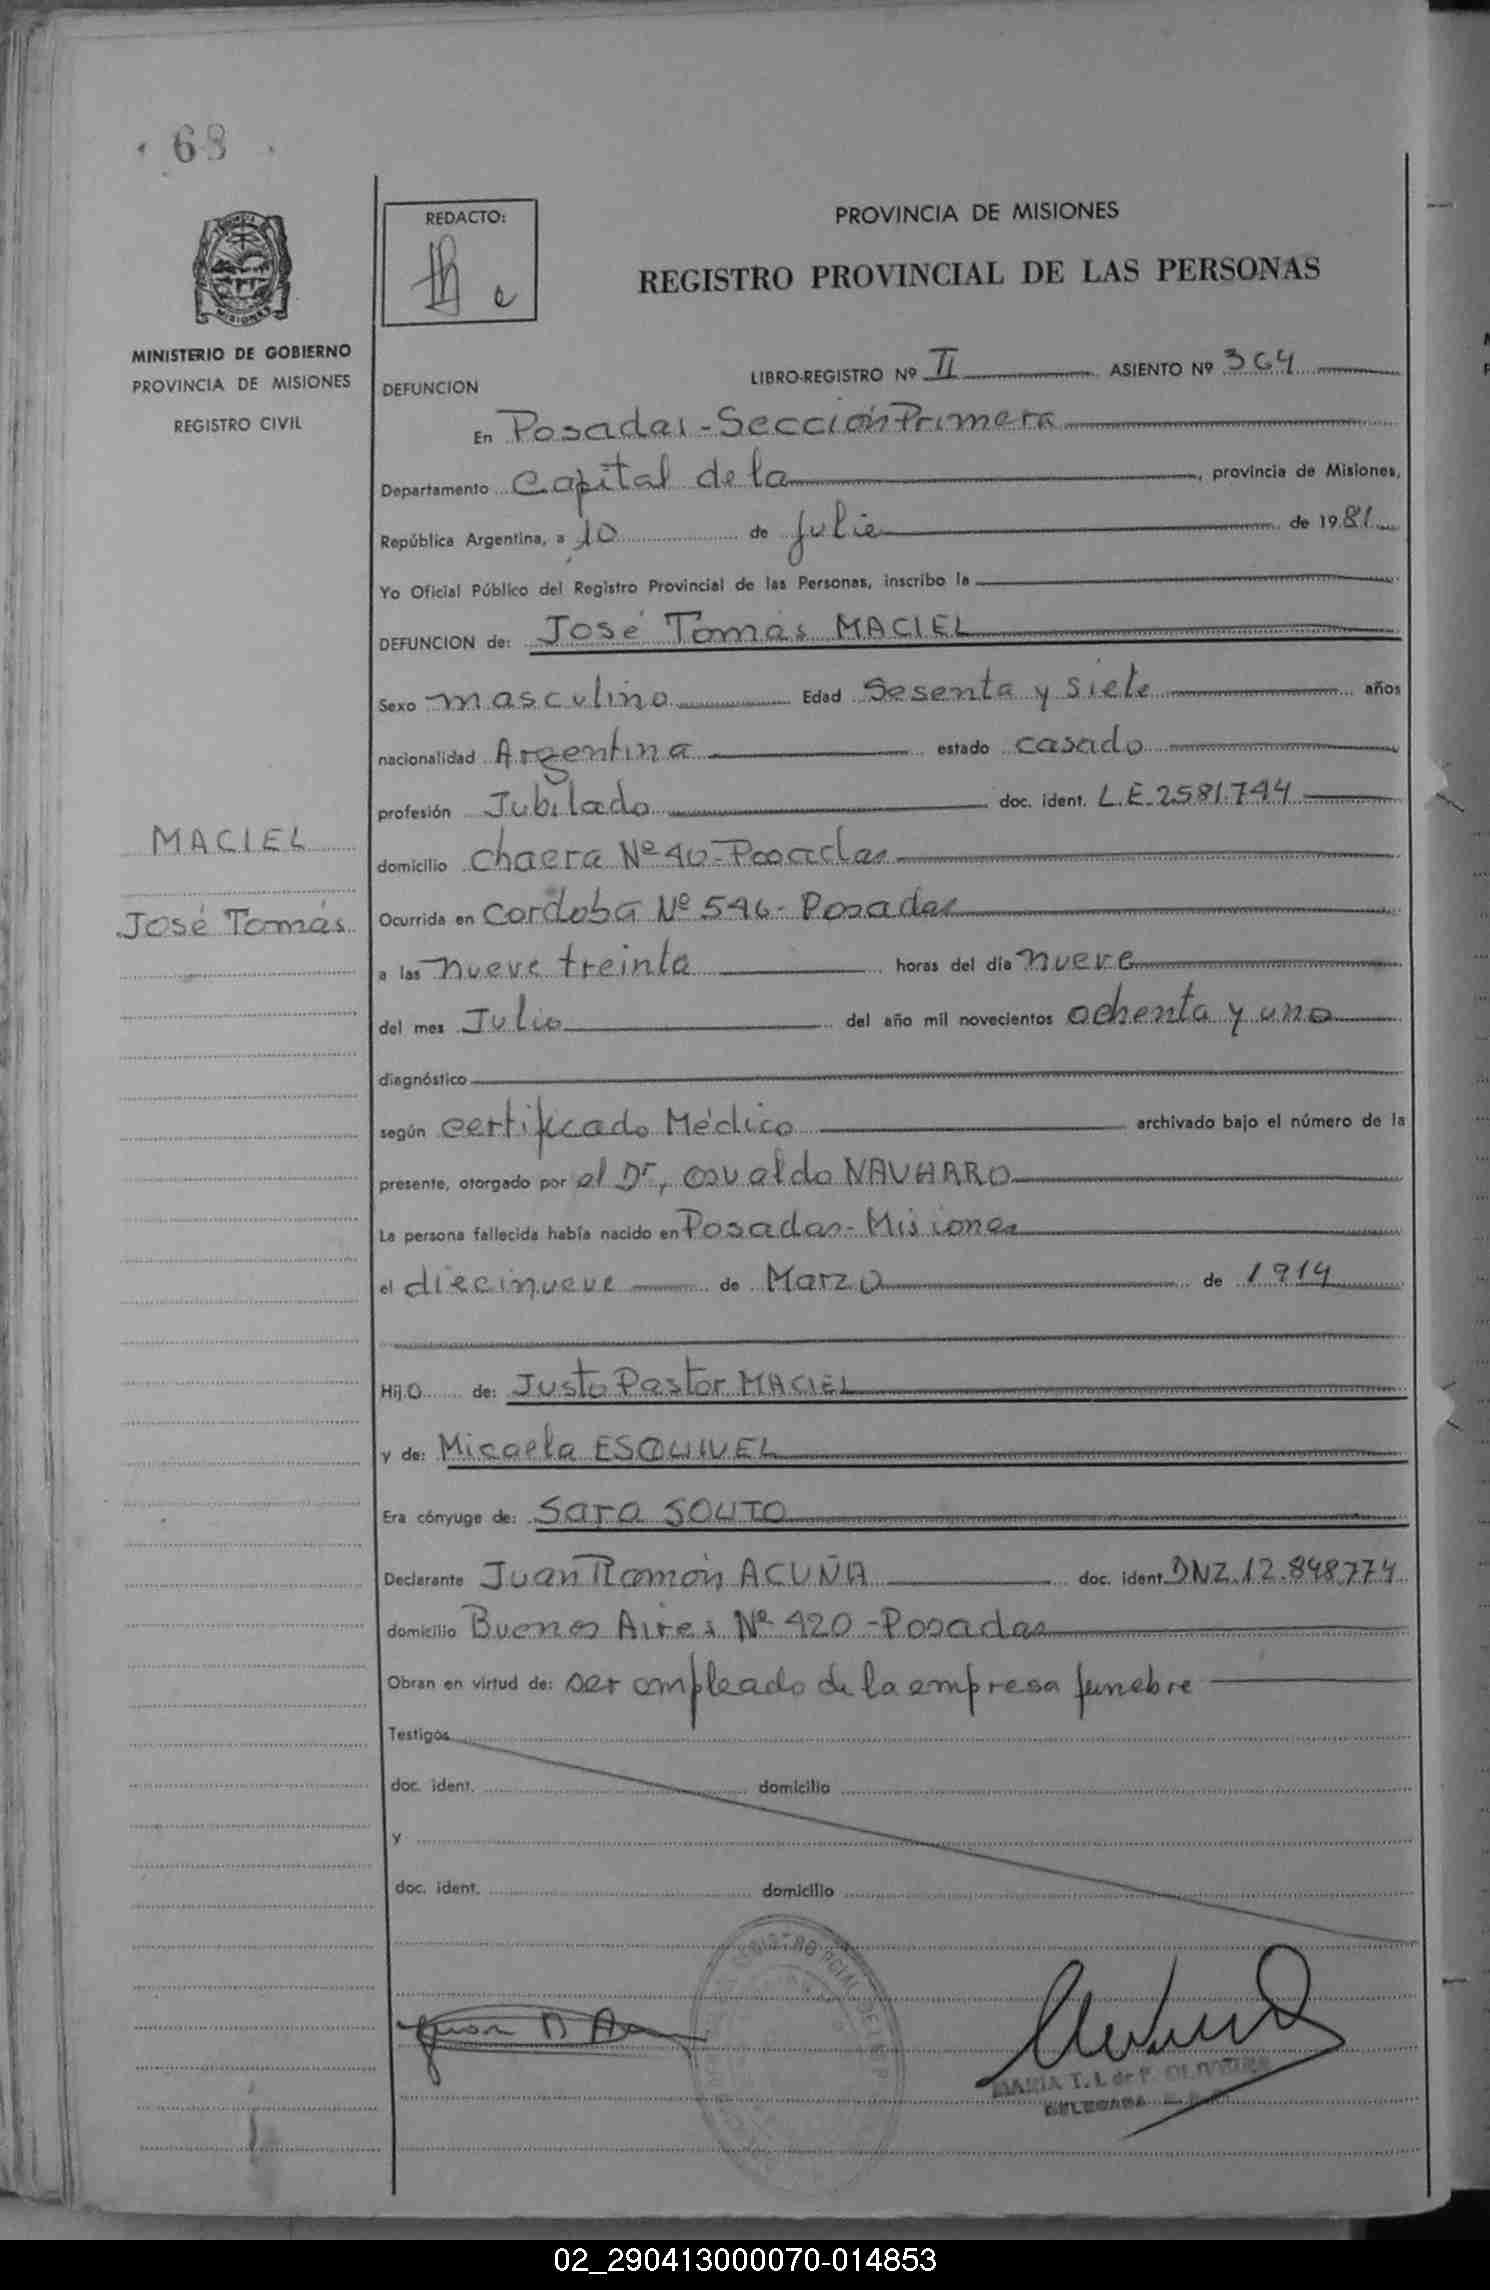 68
REDACTO:
PROVINCIA DE MISIONES
REGISTRO PROVINCIAL DE LAS PERSONAS
MISIONES
MINISTERIO DE GOBIERNO
PROVINCIA DE MISIONES
REGISTRO CIVIL
DEFUNCION
LIBRO-REGISTRO Nº II ASIENTO Nº 364
En Posadas - Sección Primera
Departamento Capital de la, provincia de Misiones,
República Argentina, a 10 de Julio de 1981
Yo Oficial Público del Registro Provincial de las Personas, inscribo la
DEFUNCION de: José Tomás MACIEL
Sexo masculino Edad Sesenta y Siete años
nacionalidad Argentina estado casado
profesión Jubilado doc. ident. L.E. 2.581.744
MACIEL
José Tomás
domicilio chacra Nº 40 - Posadas
Ocurrida en Cordoba Nº 546 - Posadas
a las nueve treinta horas del día nueve
del mes Julio del año mil novecientos ochenta y uno
diagnóstico
según certificado Médico archivado bajo el número de la
presente, otorgado por el Dr, Osvaldo NAVARRO
La persona fallecida había nacido en Posadas - Misiones
el diecinueve de Marzo de 1914
Hijo de: Justo Pastor MACIEL
y de: Micaela ESQUIVEL
Era cónyuge de: Sara SOUTO
Declarante Juan Ramón ACUÑA doc. ident. DNI. 12.848.774
domicilio Buenos Aires Nº 420 - Posadas
Obran en virtud de: ser empleado de la empresa funebre
Testigos
doc. ident. domicilio
y
doc. ident. domicilio
MARIA T. I. de F. OLIVEIRA
DELEGADA
02_290413000070-014853